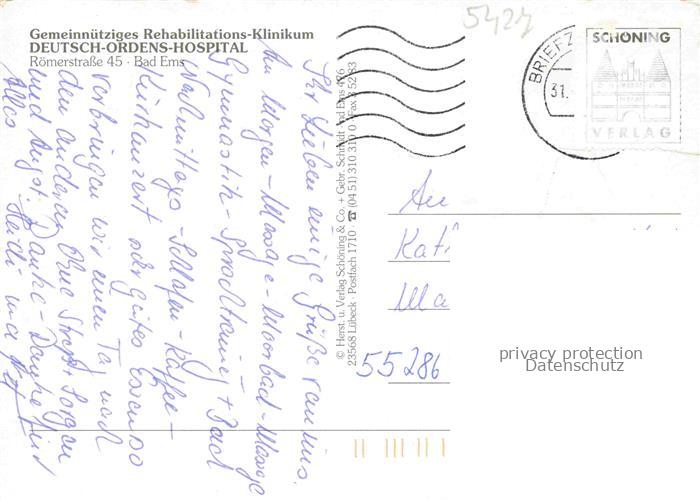 5424
Gemeinnütziges Rehabilitations-Klinikum
DEUTSCH-ORDENS-HOSPITAL
Römerstraße 45 · Bad Ems
SCHÖNING
VERLAG
BRIEFZ
31.
© Herst. u. Verlag Schöning & Co. + Gebr. Schmidt · Bad Ems 476
23568 Lübeck · Postfach 1710 · ☎ (04 51) 310 310
Ihr Lieben einige Grüße von uns.
Am Morgen - Massage - Moorbad - Massage
Gymnastik - Sprachtraining +
Nachmittags - Schlafen - Kaffee -
Kurkonzert oder gutes Essen so
verbringen wir einen Tag nach
den anderen Ohne Streß + Sorgen
und Angst. Danke - Danke für
Alles Heidi und
An
Kati
Ma
55286
privacy protection
Datenschutz